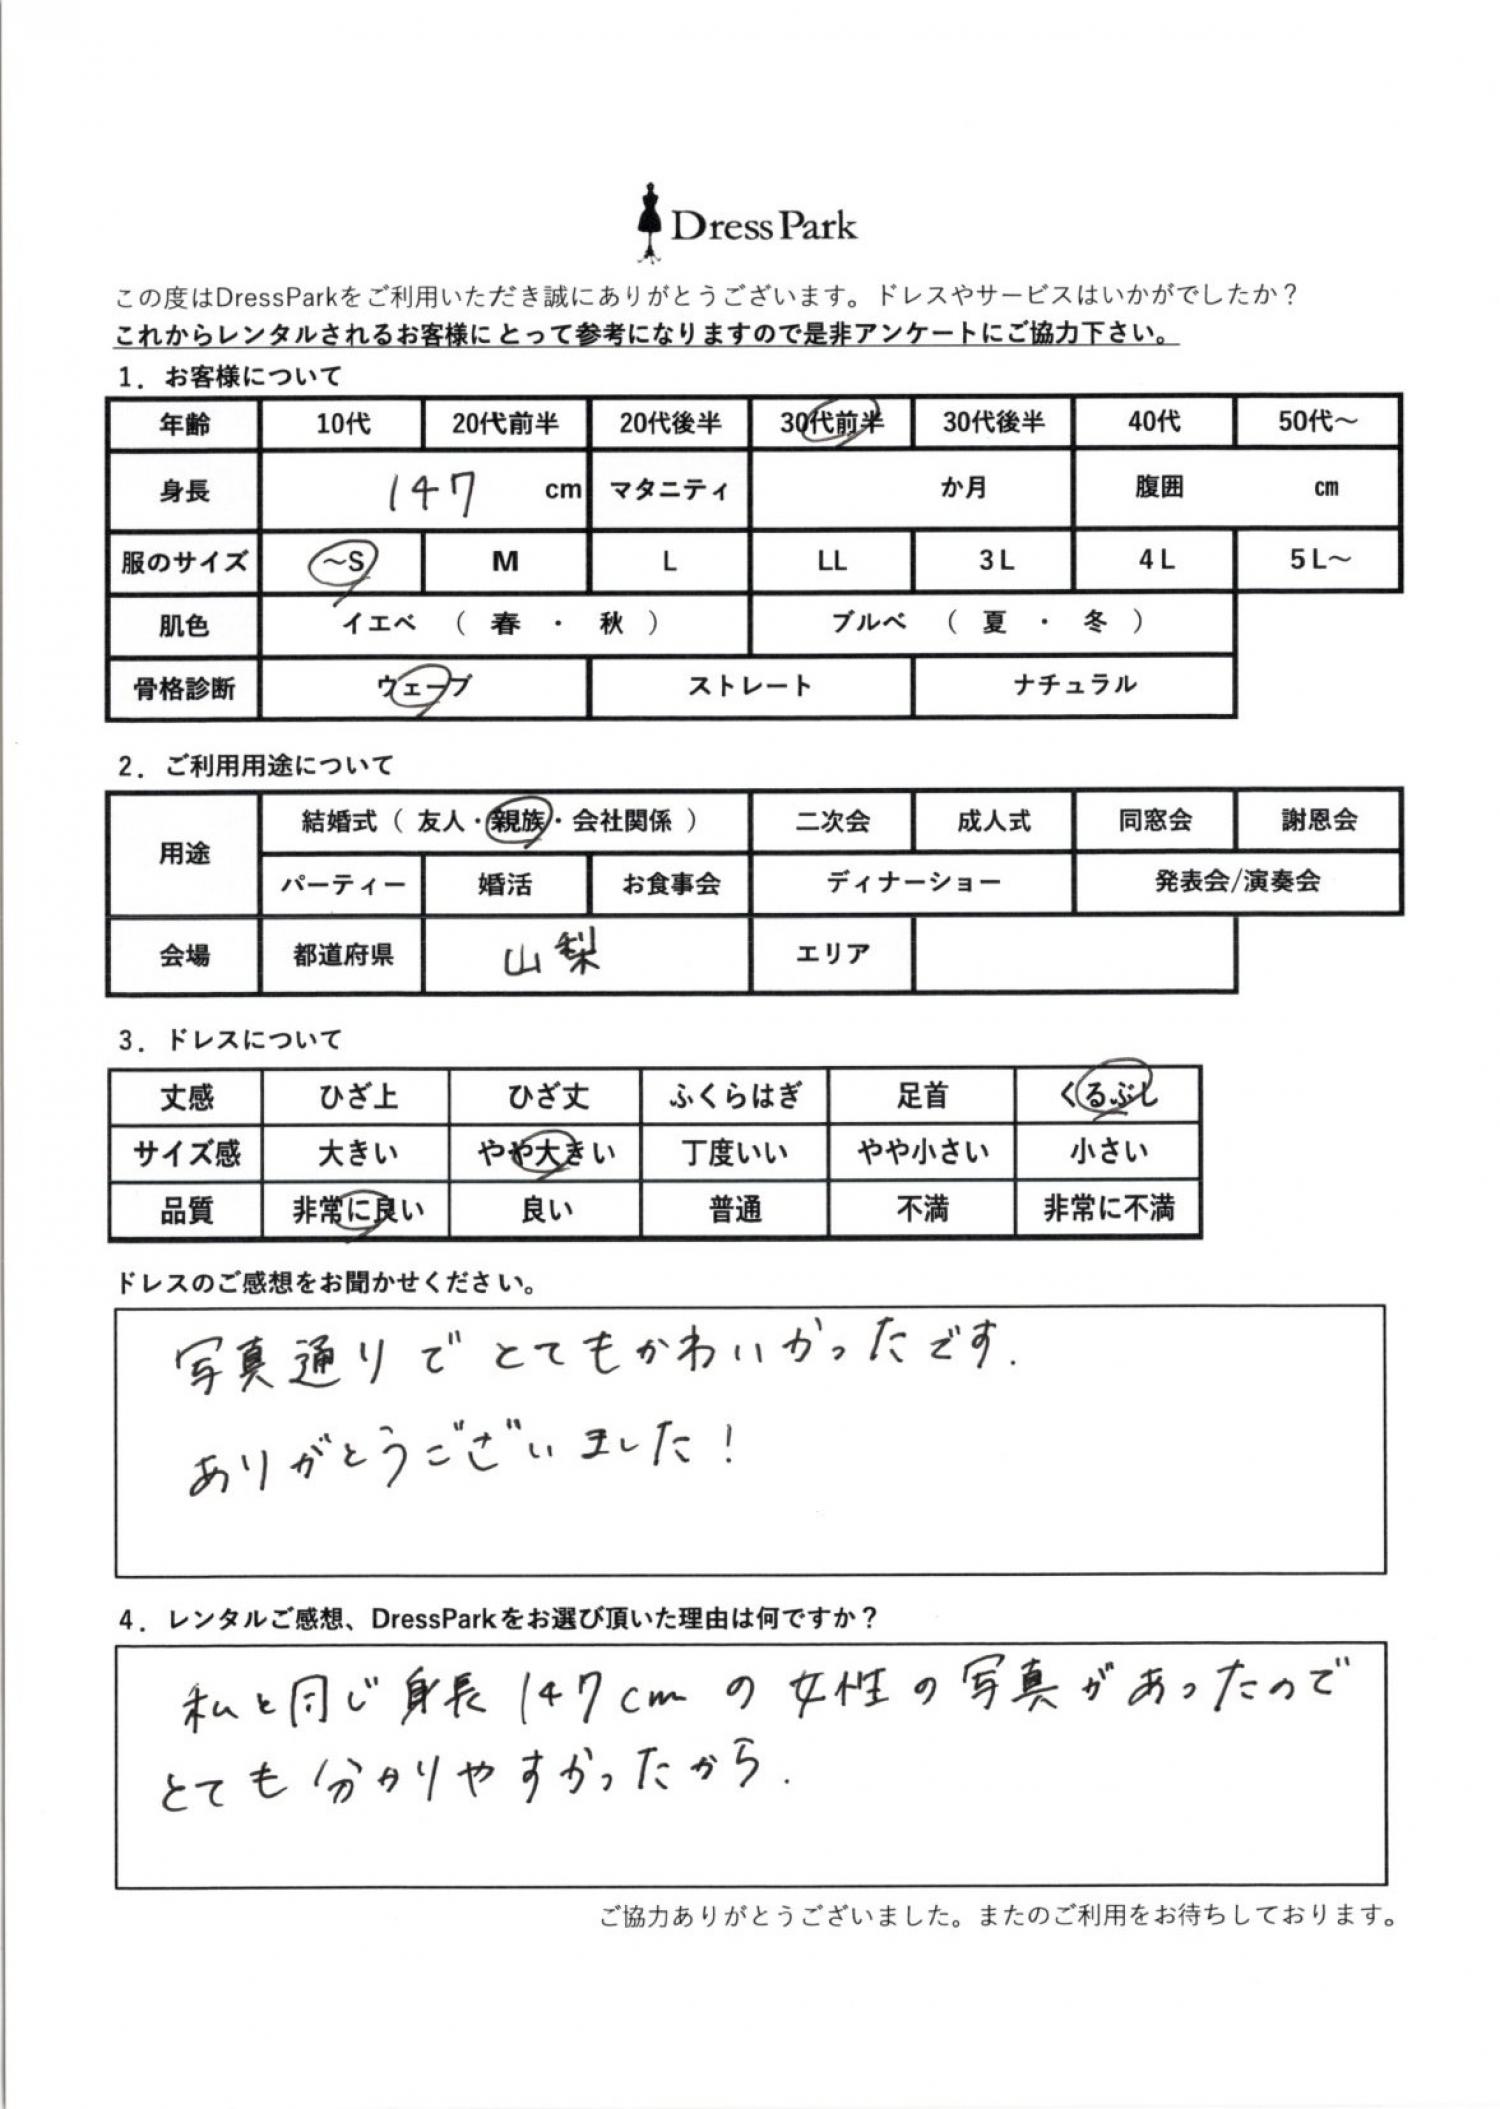 Dress Park
この度はDressParkをご利用いただき誠にありがとうございます。ドレスやサービスはいかがでしたか？
これからレンタルされるお客様にとって参考になりますので是非アンケートにご協力下さい。
1．お客様について
年齢 10代 20代前半 20代後半 30代前半 30代後半 40代 50代～
身長 147 cm マタニティ か月 腹囲 ㎝
服のサイズ ～S M L LL 3L 4L 5L～
肌色 イエベ （ 春 ・ 秋 ） ブルベ （ 夏 ・ 冬 ）
骨格診断 ウェーブ ストレート ナチュラル
2．ご利用用途について
用途 結婚式（ 友人・親族・会社関係 ） 二次会 成人式 同窓会 謝恩会
パーティー 婚活 お食事会 ディナーショー 発表会/演奏会
会場 都道府県 山梨 エリア
3．ドレスについて
丈感 ひざ上 ひざ丈 ふくらはぎ 足首 くるぶし
サイズ感 大きい やや大きい 丁度いい やや小さい 小さい
品質 非常に良い 良い 普通 不満 非常に不満
ドレスのご感想をお聞かせください。
写真通りでとてもかわいかったです.
ありがとうございました!
4．レンタルご感想、DressParkをお選び頂いた理由は何ですか？
私と同じ身長147cmの女性の写真があったので
とても分かりやすかったから.
ご協力ありがとうございました。またのご利用をお待ちしております。